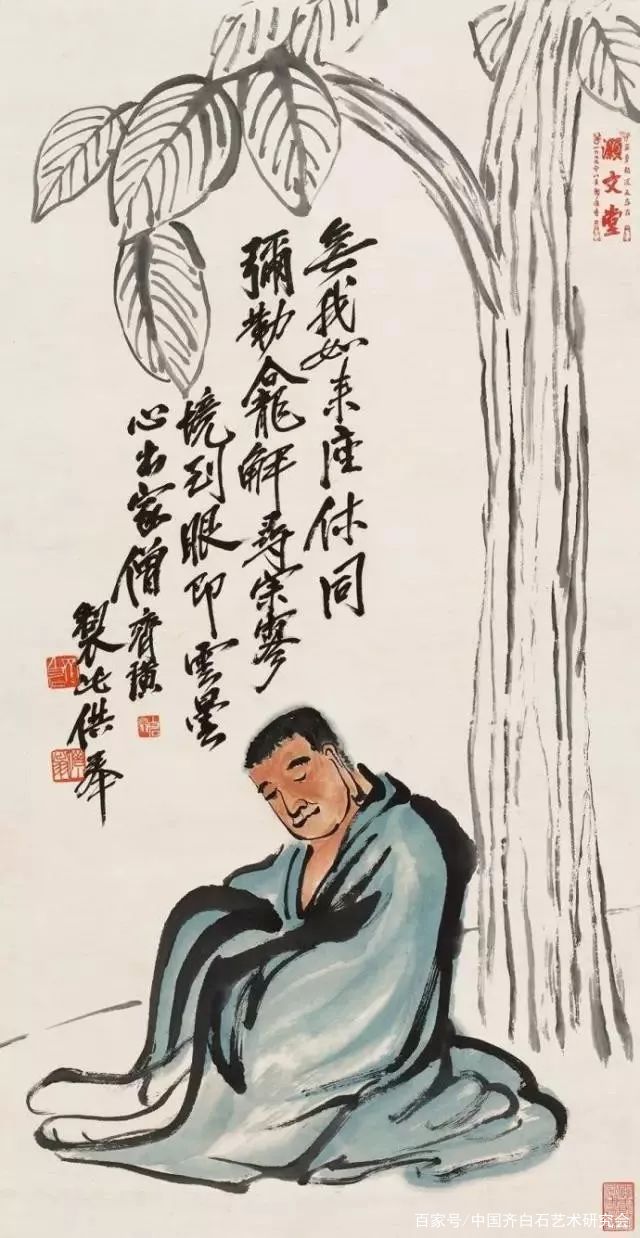 無我如來座休同
彌勒龕解尋寂寥
境到眼即雲曇
心出家僧齊璜
製此供奉
灝文堂
百家号/中国齐白石艺术研究会